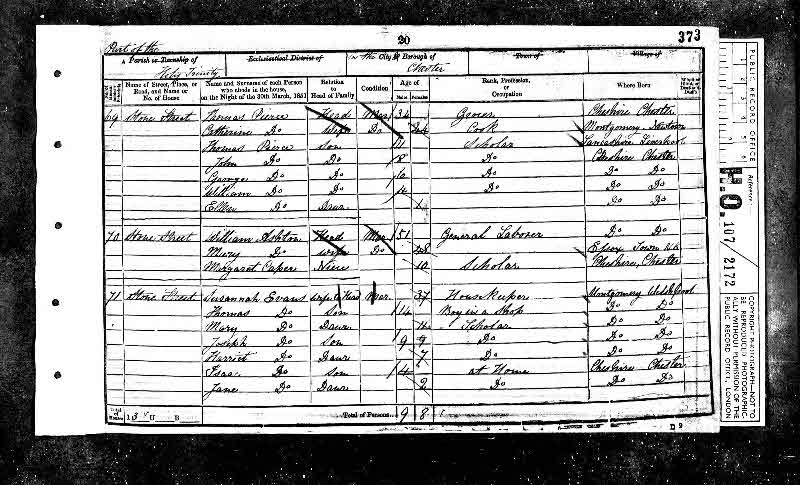 Part of the
20
373
A Parish or Township of
Ecclesiastical District of
In the City or Borough of
Town of
Village of
Holy Trinity
Chester
Name of Street, Place, or Road, and Name or No. of House
Name and Surname of each Person who abode in the house, on the Night of the 30th March, 1851
Relation to Head of Family
Condition
Age of
Males
Females
Rank, Profession, or Occupation
Where Born
69 Stone Street Thomas Pierce Head Mar 34 Cheshire Chester
Catherine Do Wife Do 34 Cook Montgomery Newtown
Thomas Pierce Son 11 Scholar Lancashire Liverpool
John Do Do 8 Do Cheshire Chester
George Do Do 6 Do Do Do
William Do Do 4 Do Do Do
Ellen Do Daur Do Do
70 Stone Street William Ashton Head Mar 51 General Laborer Do Do
Mary Do Wife Do 48 Essex
Margaret Niece 10 Scholar Cheshire, Chester
71 Stone Street Susannah Evans Head Mar 37 Housekeeper Montgomery
Thomas Do Son 14 Boy in a Shop Do Do
Mary Do Daur Scholar Do Do
Joseph Do Son 9 Do Do Do
Harriet Do Daur 7 Do Do Do
Isaac Do Son 4 at Home Cheshire Chester
Jane Do Daur 2 Do Do Do
Total of Houses
13 U B
Total of Persons
9 8
PUBLIC RECORD OFFICE
Reference:-
1 2 3 4 5 6
H.O. 107/2172
COPYRIGHT PHOTOGRAPH-NOT TO BE REPRODUCED PHOTOGRAPHICALLY WITHOUT PERMISSION OF THE PUBLIC RECORD OFFICE, LONDON